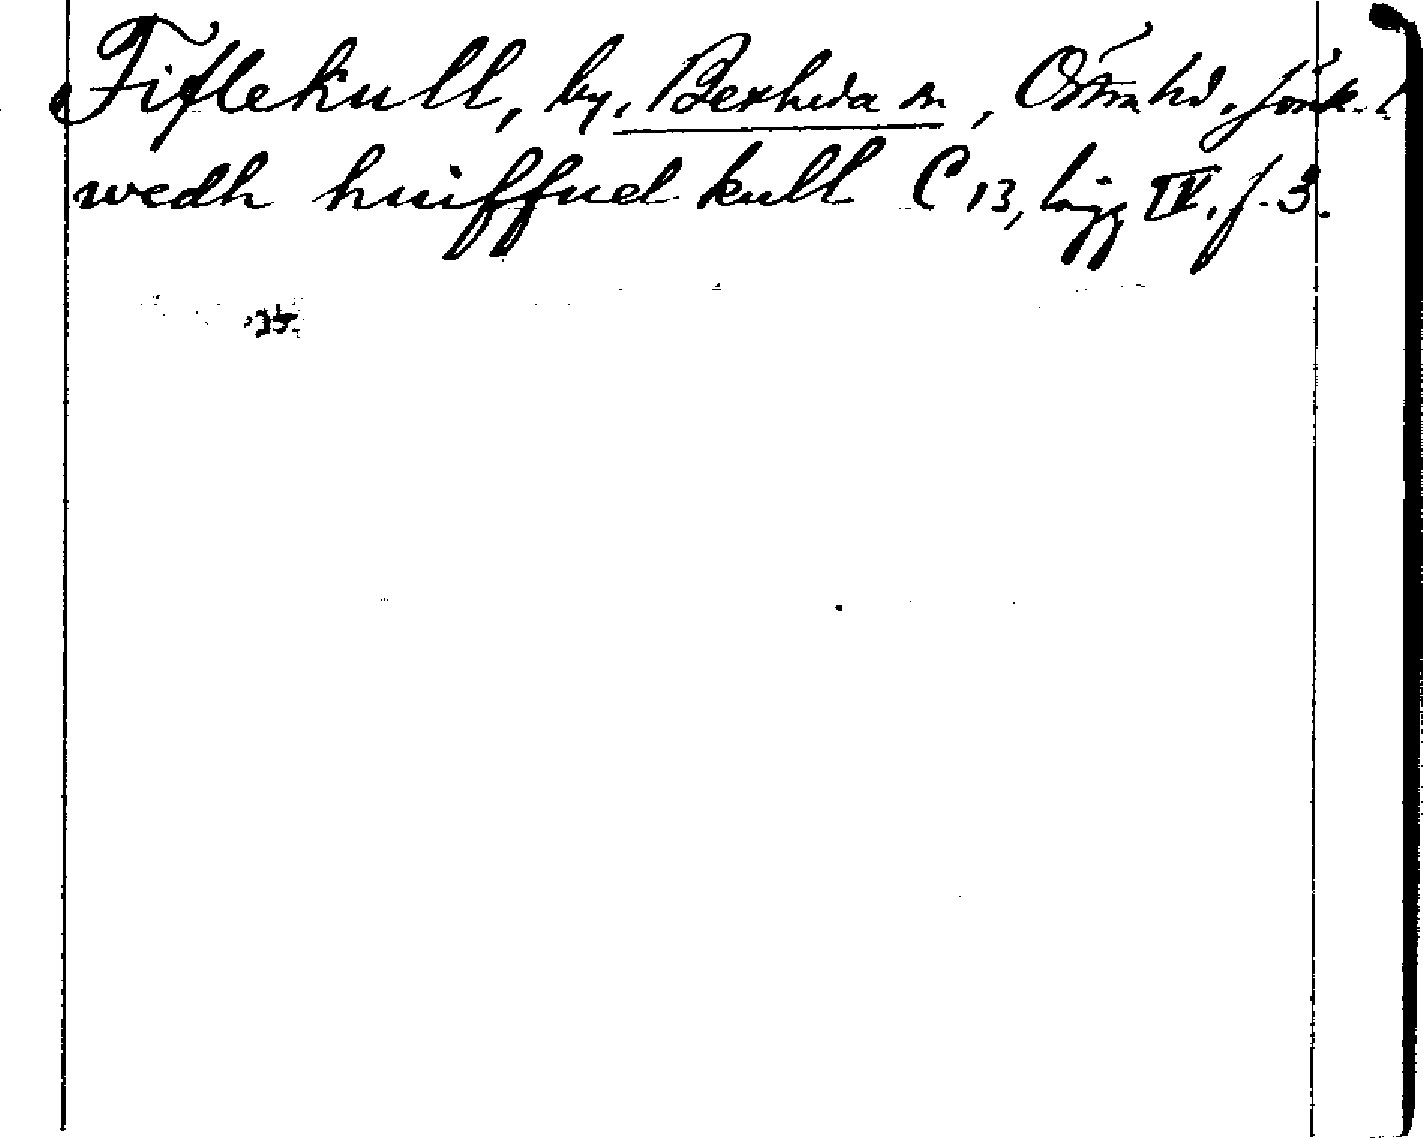 Fiflekull, by, Bexheda sn, Östra hd. Jönk. l
wedh huiffuel kull C 13, lägg IV, f. 3.